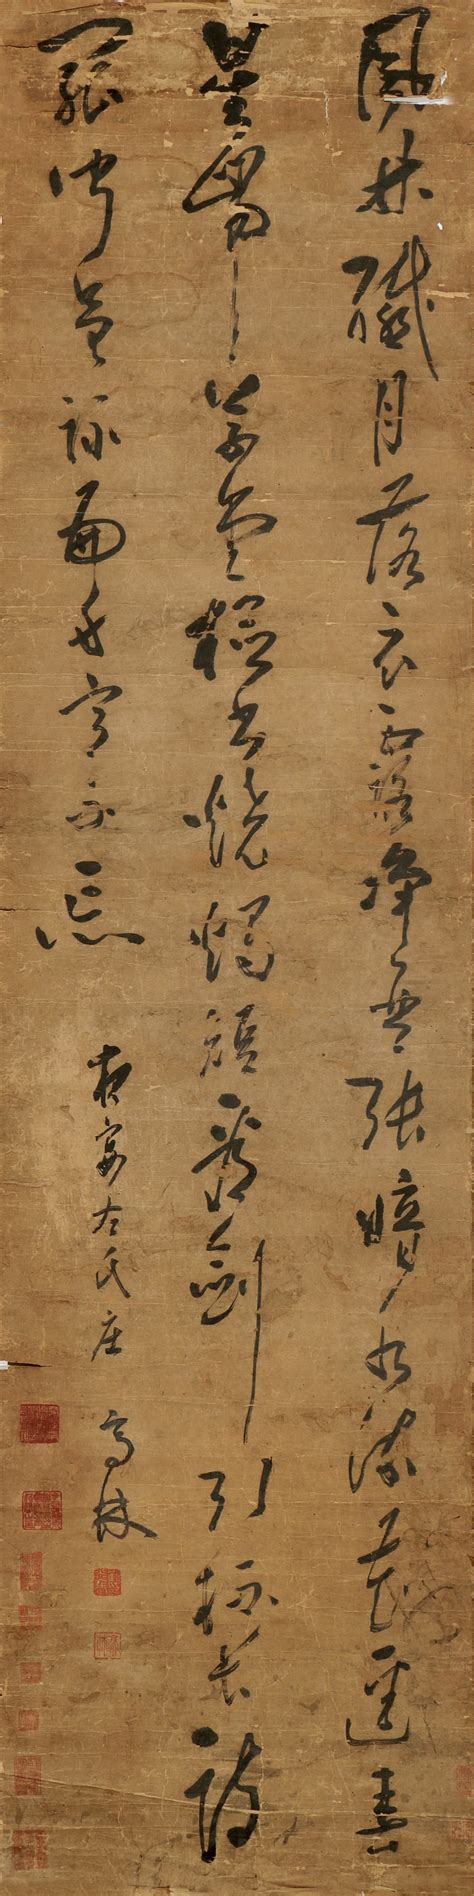 風林纖月落衣露淨琴張暗水流花逕春
星帶草堂檢書燒燭短看劍引杯長詩
罷聞吳詠扁舟意不忘
夜宴左氏庄